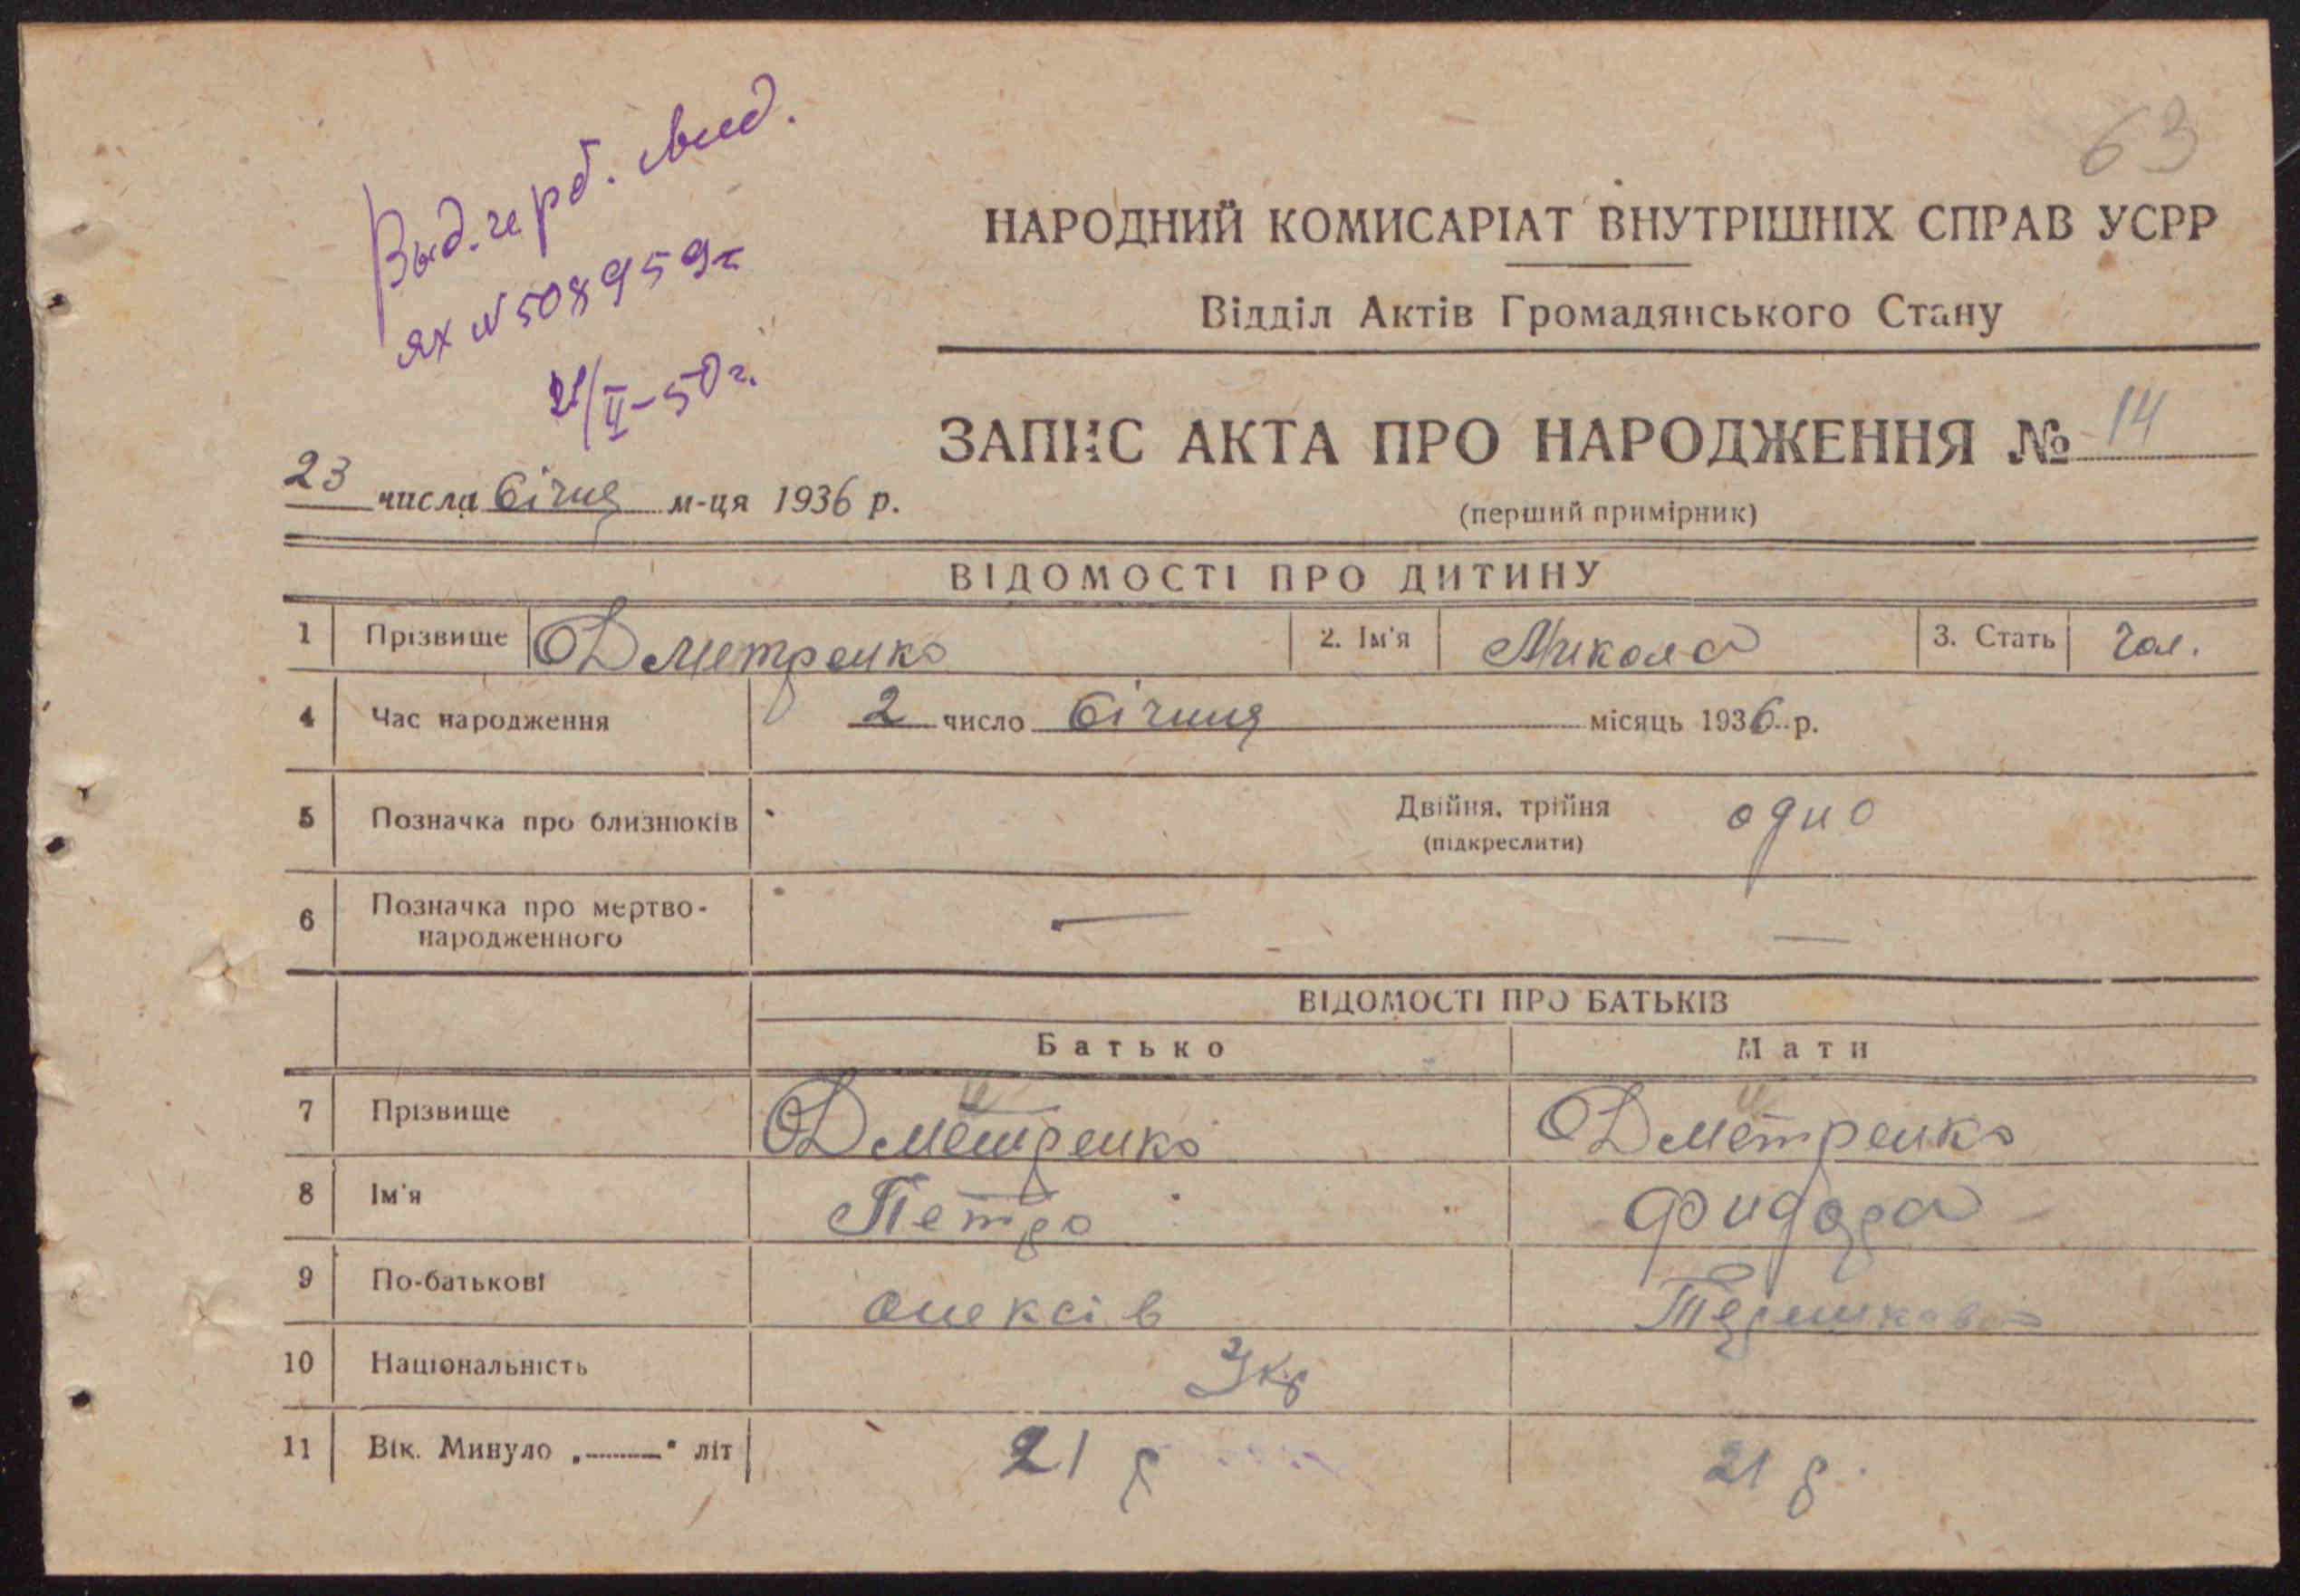 63
Выд. герб. свид.
ЯХ № 508959
21/II-50 г.
НАРОДНИЙ КОМИСАРІАТ ВНУТРІШНІХ СПРАВ УСРР
Відділ Актів Громадянського Стану
ЗАПИС АКТА ПРО НАРОДЖЕННЯ № 14
23 числа Січня м-ця 1936 р.
(перший примірник)
ВІДОМОСТІ ПРО ДИТИНУ
1 Прізвище Дметренко 2. Ім'я Микола 3. Стать Чол.
4 Час народження 2 число Січня місяць 1936 р.
5 Позначка про близнюків Двійня, трійня одно
(підкреслити)
6 Позначка про мертво-
народженного — —
ВІДОМОСТІ ПРО БАТЬКІВ
Батько Мати
7 Прізвище Дметренко Дметренко
8 Ім'я Петро Фидора
9 По-батькові Олексів
10 Національність Укр
11 Вік. Минуло „——" літ 21 р 21 р.